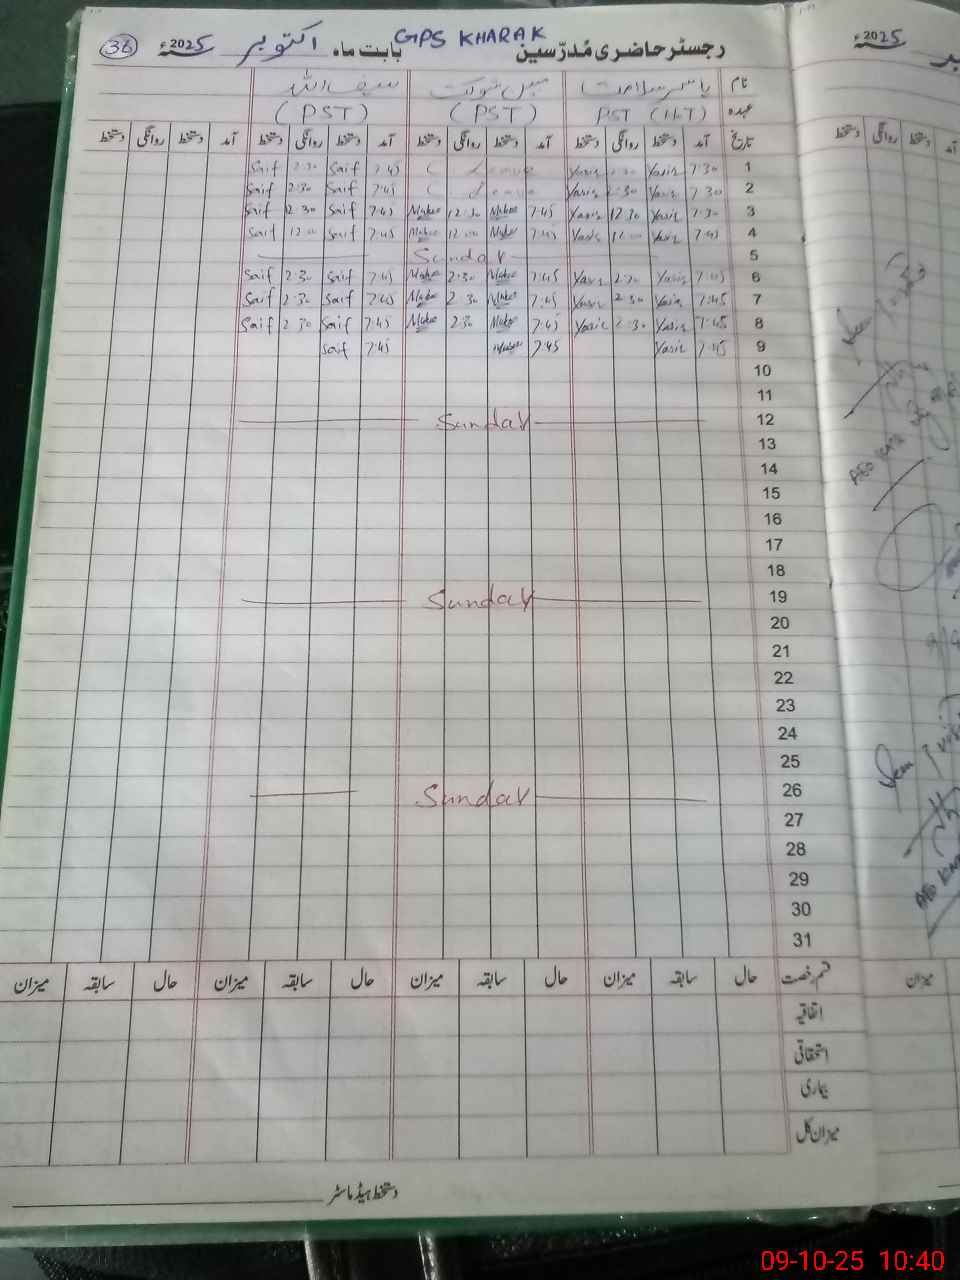 36 2025ء اکتوبر بابت ماہ GPS KHARAK رجسٹر حاضری مُدرّسین
نام یاسر سلامت شوکت سیف اللہ
عہدہ PST (H.T) (PST) (PST)
تاریخ آمد دستخط روانگی دستخط آمد دستخط روانگی دستخط آمد دستخط روانگی دستخط آمد دستخط روانگی دستخط
1 7:30 Yasir Yasir C Leave 7:45 Saif 2:30 Saif
2 7:30 Yasir 2:30 Yasir C Leave 7:45 Saif 2:30 Saif
3 7:30 Yasir 12:30 Yasir 7:45 12:30 7:45 Saif 2:30 Saif
4 7:45 Yasir 12:00 Yasir 7:45 12:00 7:45 Saif 12:00 Saif
5 Sunday
6 7:45 Yasir 2:30 Yasir 7:45 2:30 7:45 Saif 2:30 Saif
7 7:45 Yasir 2:30 Yasir 7:45 2:30 7:45 Saif 2:30 Saif
8 7:45 Yasir 2:30 Yasir 7:45 2:30 7:45 Saif 2:30 Saif
9 7:45 Yasir 7:45 7:45 Saif
10
11
12 Sunday
13
14
15
16
17
18
19 Sunday
20
21
22
23
24
25
26 Sunday
27
28
29
30
31
قسم رخصت حال سابقہ میزان حال سابقہ میزان حال سابقہ میزان حال سابقہ میزان
اتفاقیہ
استحقاقی
بیماری
میزان کل
دستخط ہیڈ ماسٹر
2025ء
دستخط روانگی دستخط آمد
میزان
09-10-25 10:40